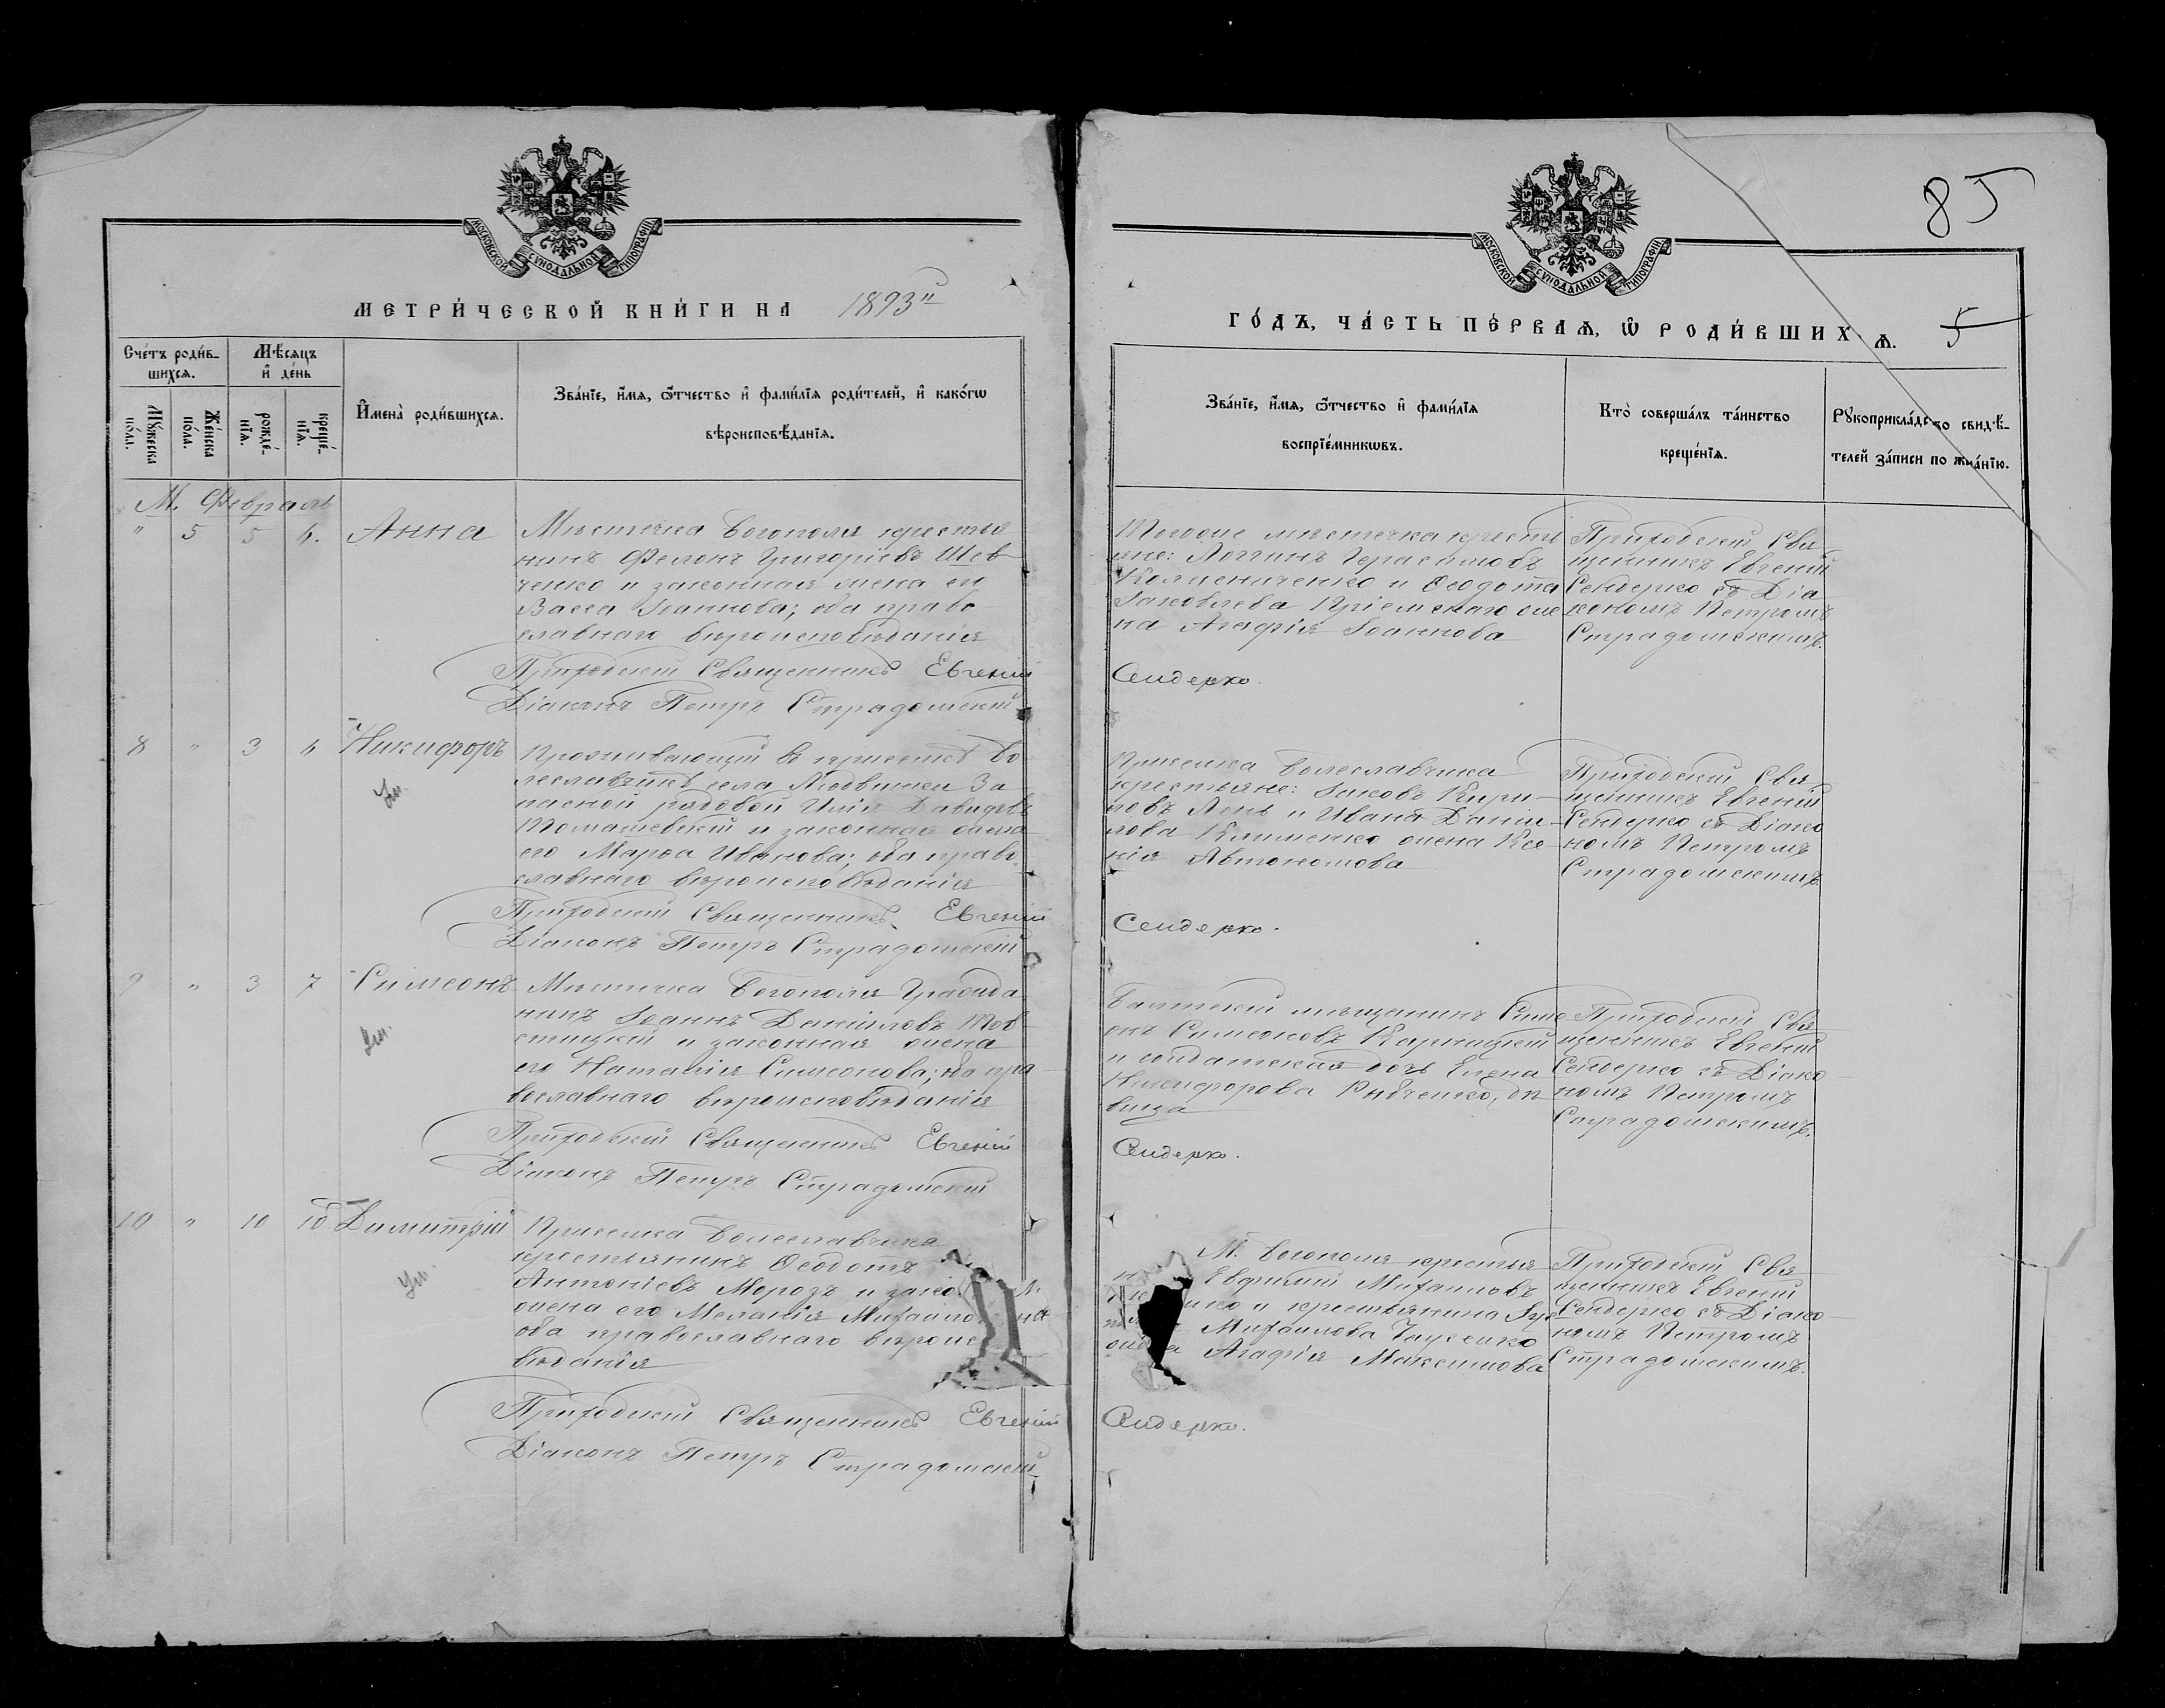 85
МОСКОВСКОЙ СѴНОДАЛЬНОЙ ТИПОГРАФІИ
МЕТРИ́ЧЕСКОЙ КНИ́ГИ НА 1893й
Сче́тъ роди́в-
шихсѧ.
Мѣ́сѧцъ
и҆ де́нь
Мꙋ́жеска
по́ла.
Же́нска
по́ла.
рожде́-
нїѧ.
креще́-
нїѧ.
И҆мена̀ роди́вшихсѧ.
Зва́нїе, и҆́мѧ, ѻ҆́тчество и҆ фами́лїѧ роди́телей, и҆ како́гѡ
вѣроисповѣ́данїѧ.
М. Февраль
" 5 5 6. Анна
Мѣстечка Богополя крестья
нинъ Филонъ Григоріевъ Шев-
ченко и законная жена его
Васса Іоаннова; оба право-
славнаго вѣроисповѣданія
Приходскій Священникъ Евгеній
Діаконъ Петръ Страдомскій
8 " 3 6 Никифоръ
Ум.
Проживающій в присёлкѣ Бо
леславчикѣ села Людвинки За
пасной рядовой Илія Давидовъ
Томашевскій и законная жена
его Марѳа Иванова; оба право
славнаго вѣроисповѣданія
Приходскій Священникъ Евгеній
Діаконъ Петръ Страдомскій
9 " 3 7 Симеонъ
Ум.
Мѣстечка Богополя Гражда
нинъ Іоаннъ Даніиловъ Тов
стицкій и законная жена
его Наталія Симеонова; оба пра
вославнаго вѣроисповѣданія
Приходскій Священникъ Евгеній
Діаконъ Петръ Страдомскій
10 " 10 10 Димитрій
Ум.
Приселка Болеславчика
крестьянинъ Ѳеодотъ
Антоніевъ Морозъ и зако
жена его Меланія Михаилов на
оба православнаго вѣроис
вѣданія
Приходскій Священникъ Евгеній
Діаконъ Петръ Страдомскій
МОСКОВСКОЙ СѴНОДАЛЬНОЙ ТИПОГРАФІИ
ГО́ДЪ, ЧА́СТЬ ПЕ́РВАѦ, Ѡ҆ РОДИ́ВШИХ Ѧ. 5
Зва́нїе, и҆́мѧ, ѻ҆́тчество и҆ фами́лїѧ
воспрїе́мникѡвъ.
Кто̀ соверша́лъ та́инство
креще́нїѧ.
Рꙋкоприкла́дс во свидѣ́-
телей за́писи по жела́нїю.
Тогоже мѣстечка кресть
яне: Логгинъ Герасимовъ
Колисниченко и Ѳеодота
Іаковлева Пріемскаго же
на Агафія Іоаннова
Сендерко.
Приходскій Свя
щенникъ Евгеній
Сендерко съ Діа
кономъ Петромъ
Страдомскимъ.
Приселка Болеславчика
крестьяне: Іаковъ Кири-
ловъ Лень и Ивана Даніи-
лова Клименко жена Ксе
нія Автономова
Сендерко.
Приходскій Свя
щенникъ Евгеній
Сендерко съ Діако
номъ Петромъ
Страдомскимъ.
Балтскій мѣщанинъ Симе
онъ Симеоновъ Карницкій
и солдатская дочь Елена
Никифорова Рибченко, дѣ
вица
Сендерко.
Приходскій Свя
щенникъ Евгеній
Сендерко съ Діако
номъ Петромъ
Страдомскимъ.
М. Богополя крестья
Евфимій Михаиловъ
нко и крестьянина
Михаилова
жена Агафія Максимова
Сендерко.
Приходскій Свя
щенникъ Евгеній
Сендерко съ Діако
номъ Петромъ
Страдомскимъ.